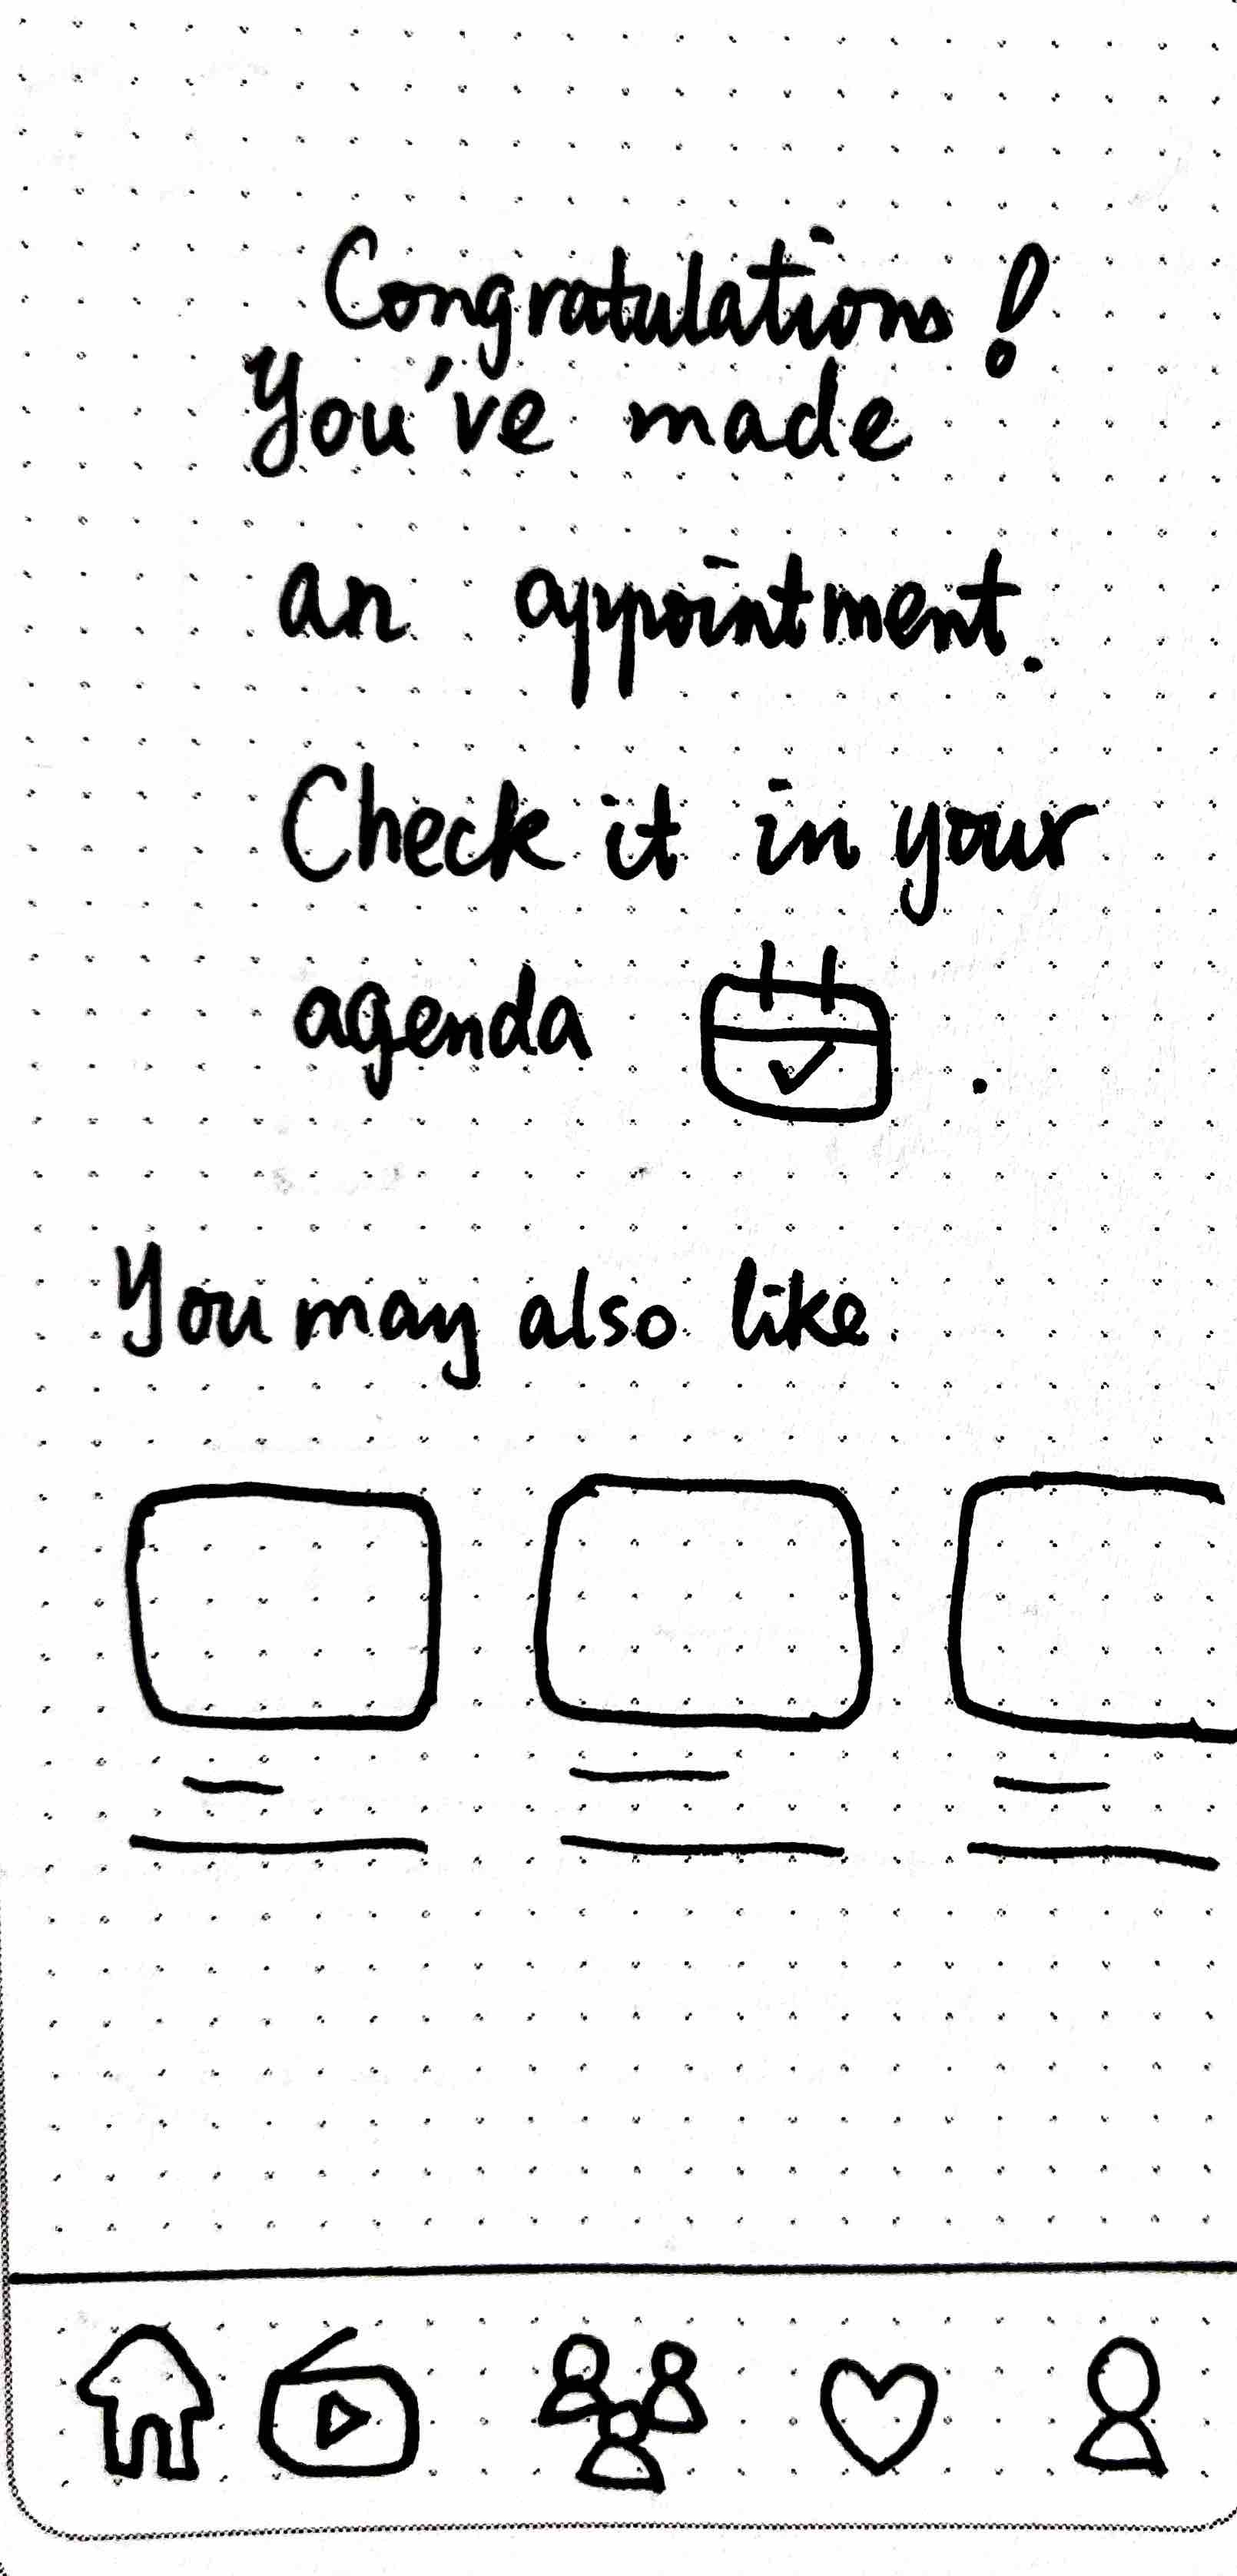 Congratulations!
You've made
an appointment.
Check it in your
agenda .
You may also like